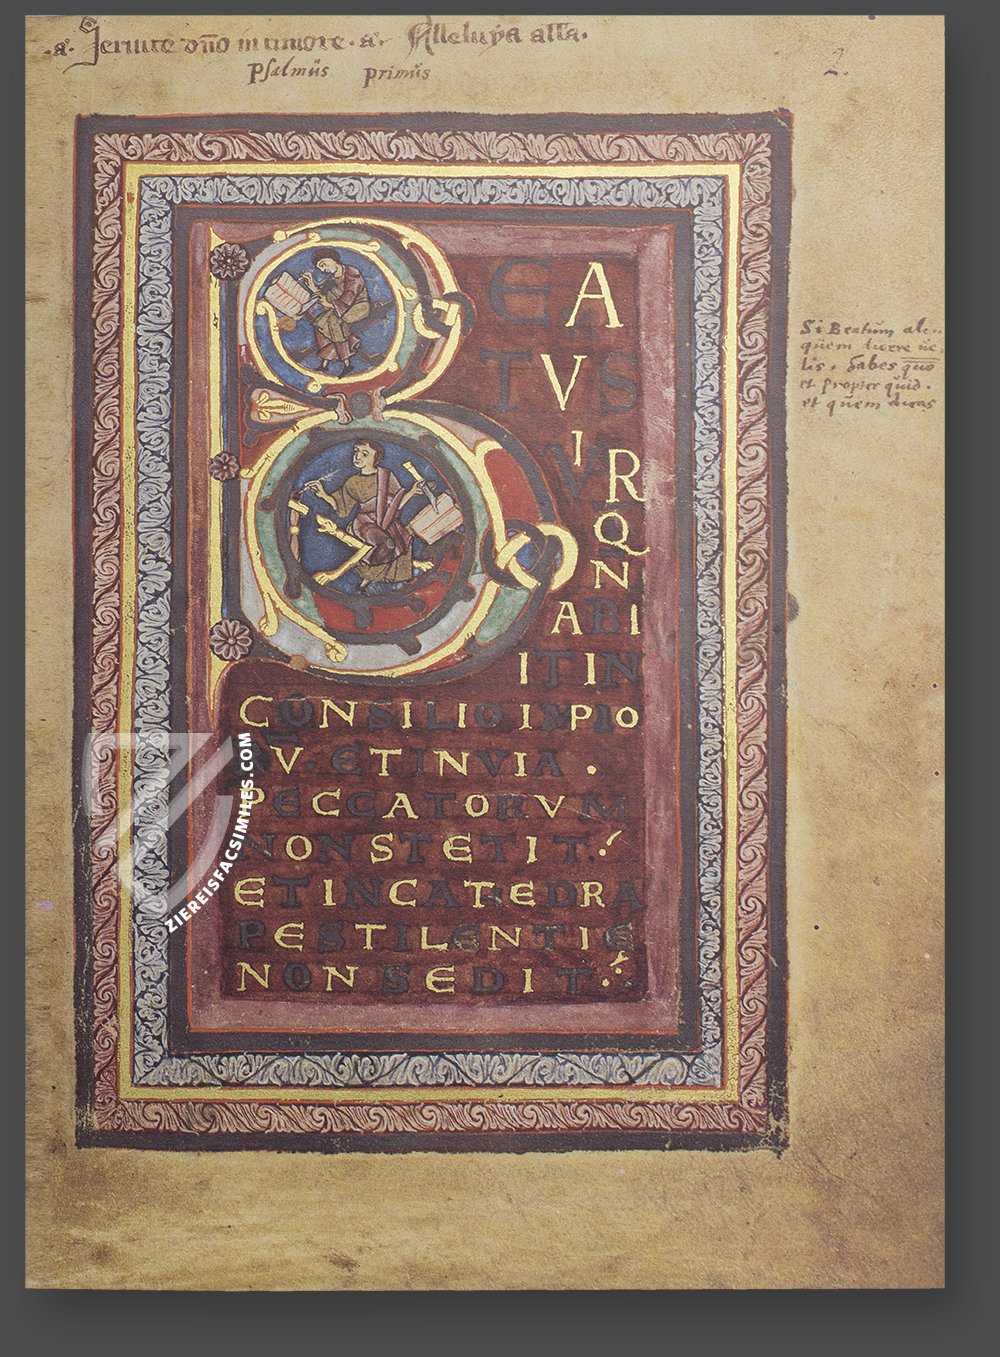 .a. Seruite dño in timore. a. Alleluya alła.
psalmūs primūs
2.
B EA
TVS
VIR
Q
VN
ABI
IITIN
CONSILIO IMPIO
RV. ET IN VIA.
PECCATORVM
NON STETIT.
ET IN CATEDRA
PESTILENTIE
NON SEDIT.
Si Beatum ali
quem dicere ue
lis. sabes quo
et propter quid.
et quem dicas
ZIEREISFACSIMILES.COM